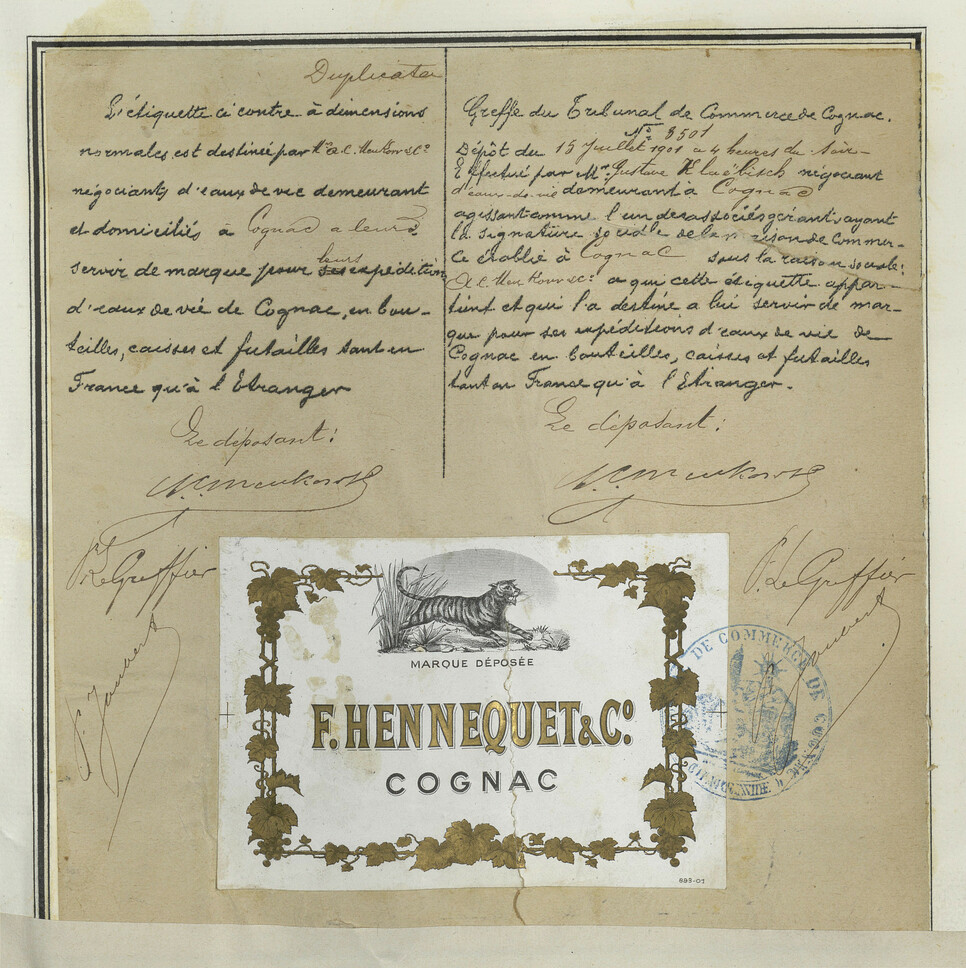 Duplicata
L'étiquette ci contre à dimensions
normales est destinée par Mrs A.C. Meukow & Co
négociants d'eaux de vie demeurant
et domiciliés à Cognac a leur
servir de marque pour leurs expéditions
d'eaux de vie de Cognac, en bou-
teilles, caisses et futailles tant en
France qu'à l'Etranger
Le déposant:
A.C. Meukow & Co
Le Greffier
Joubert
Greffe du Tribunal de Commerce de Cognac.
No 3501
Dépôt du 15 Juillet 1901 a 4 heures du soir
Effectué par Mr. Gustave Klaëbisch négociant
d'eaux-de-vie demeurant à Cognac
agissant comme l'un des associés gérants, ayant
la signature sociale de la maison de Commer-
ce établie à Cognac sous la raison sociale:
A.C. Meukow & Co a qui cette étiquette appar-
tient et qui l'a destiné a lui servir de mar-
que pour ses expéditions d'eaux de vie de
Cognac en bouteilles, caisses et futailles
tant en France qu'à l'Etranger.
Le déposant:
A.C. Meukow & Co
Le Greffier
Joubert
MARQUE DÉPOSÉE
F. HENNEQUET & Co.
COGNAC
893-01
DE COMMERCE DE COGNAC